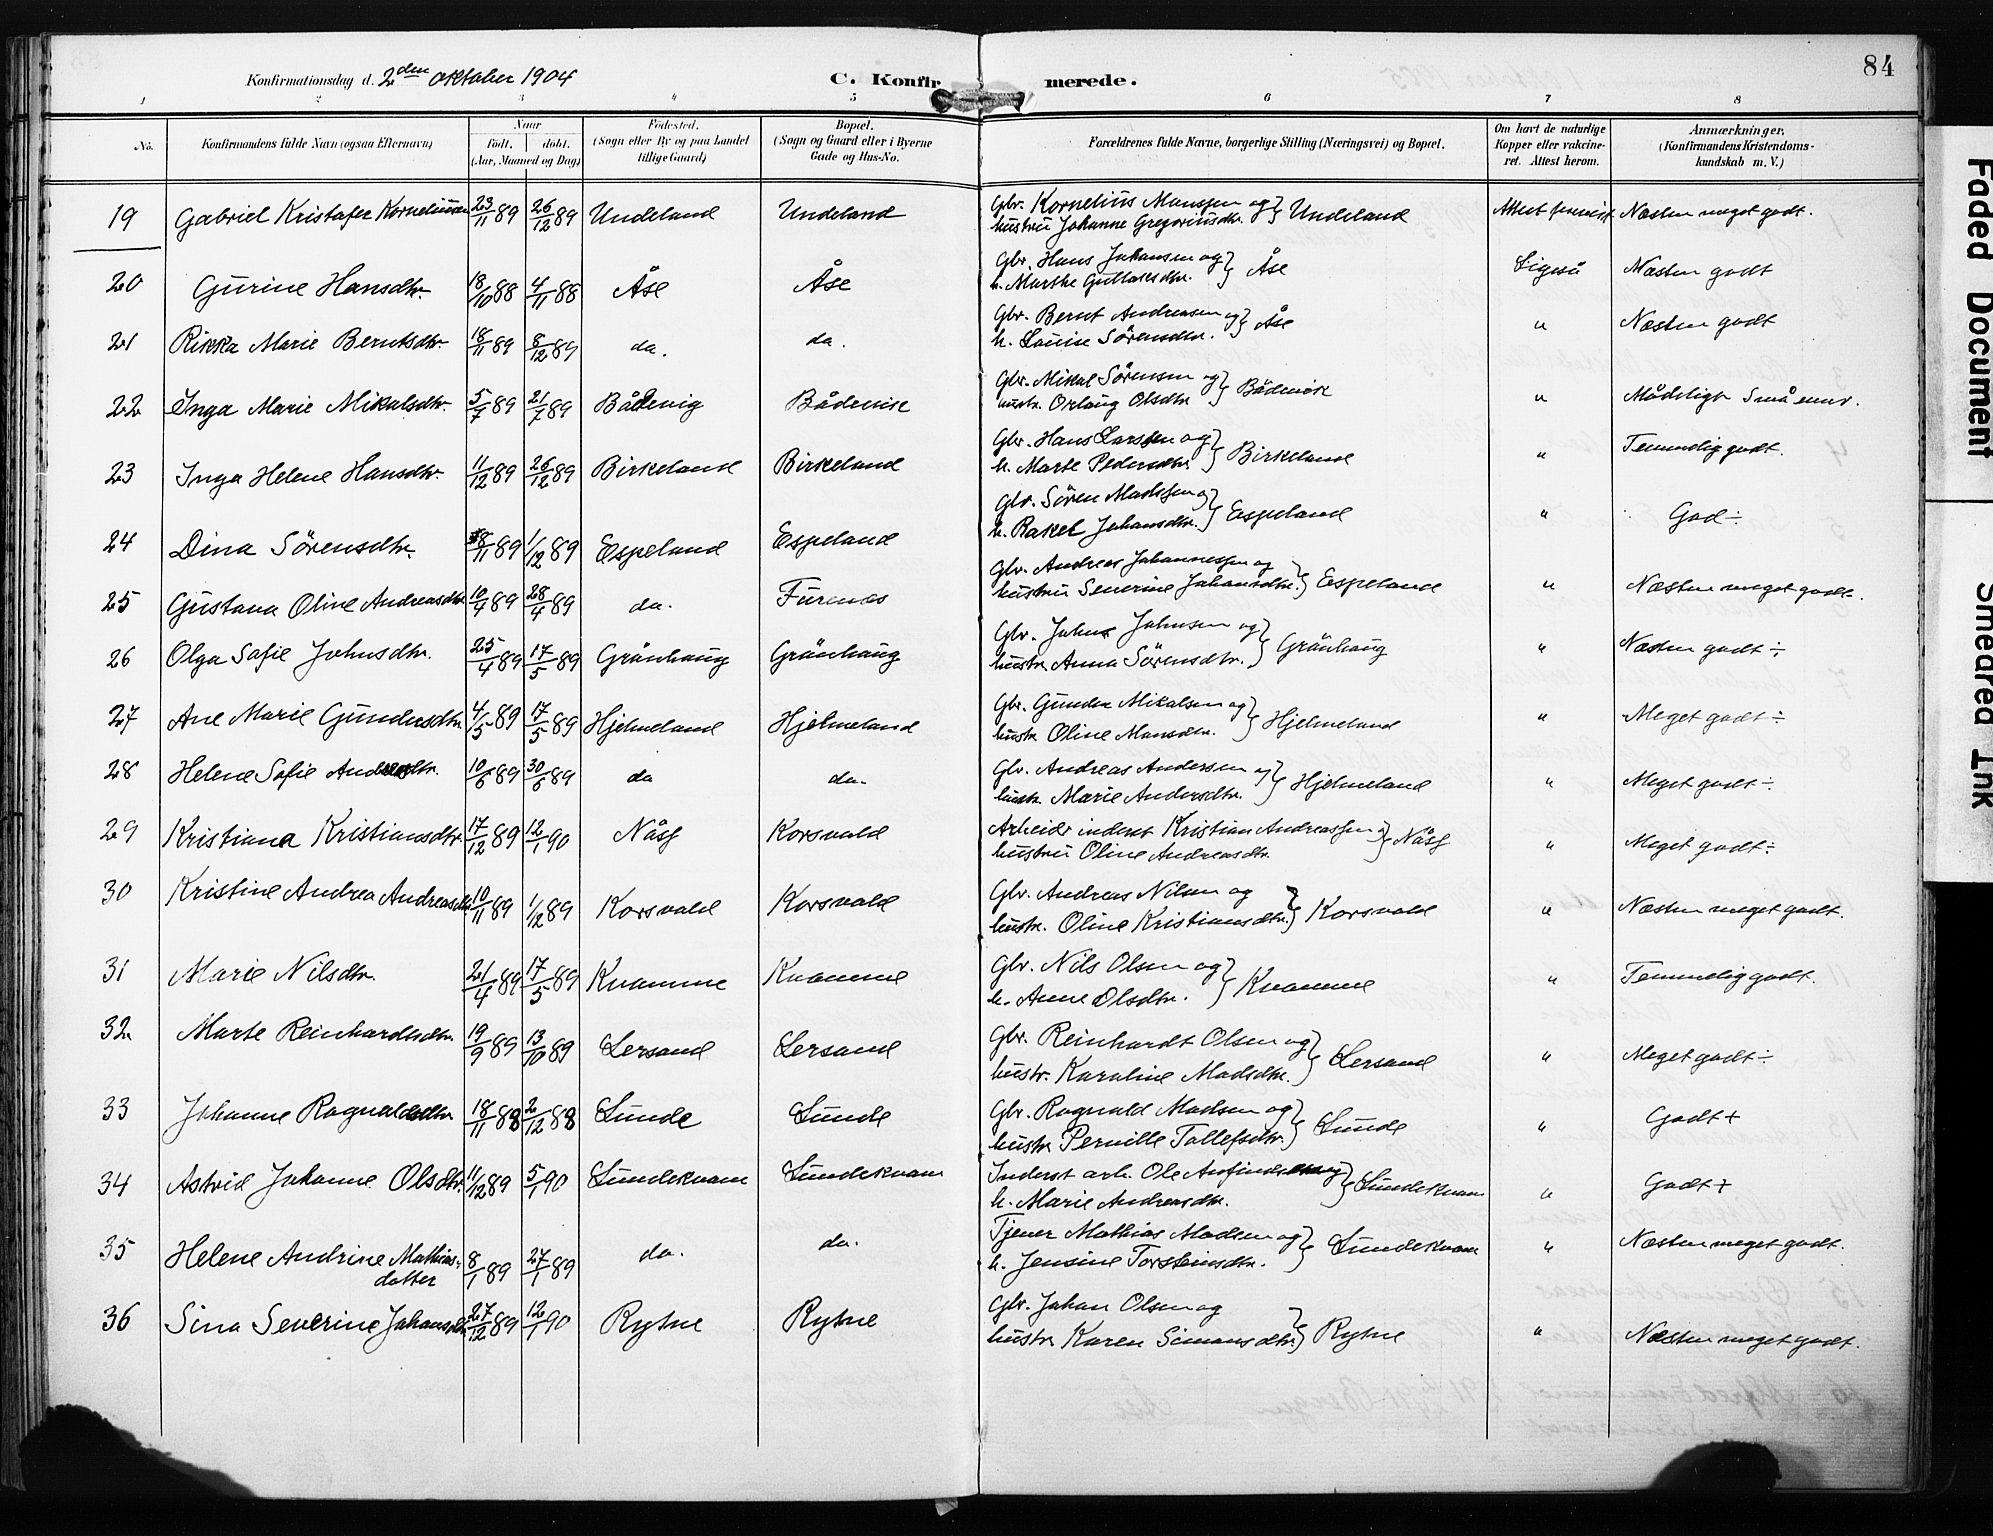 84
Konfirmationsdag d. 2den oktober 1904
C. Konfirmerede.
1 2 3 4 5 6 7 8
No. Konfirmandens fulde Navn (ogsaa Efternavn) Naar født. døbt. (Aar, Maaned og Dag) Fødested. (Sogn eller By og paa Landet tillige Gaard) Bopæl. (Sogn og Gaard eller i Byerne Gade og Hus-No. Forældrenes fulde Navne, borgerlige Stilling (Næringsvei) og Bopæl. Om havt de naturlige Kopper eller vaccineret. Attest herom. Anmærkninger. (Konfirmandens Kristendomskundskab m. V.)
19 Gabriel Kristofer Korneliussen 23/11 89 26/12 89 Undeland Undeland Gbr. Kornelius Monssen og hustru Johanne Gregoriusdtr. } Undeland Attest forevist Næsten meget godt.
20 Gurine Hansdtr. 18/10 88 4/11 88 Åse Åse Gbr. Hans Johansen og h. Marthe Guttormsdtr. } Åse Ligeså Næsten godt
21 Rikka Marie Berntsdtr. 18/11 89 8/12 89 do. do. Gbr. Bernt Andreasen og h. Louise Sörensdtr. } Åse " Næsten godt
22 Inga Marie Mikalsdtr. 5/7 89 21/7 89 Bådevig Bådevik Gbr. Mikal Sörensen og hustr. Orlaug Olsdtr } Bådevik " Mådeligt
23 Inga Helene Hansdtr. 11/12 89 26/12 89 Birkeland Birkeland Gbr. Hans Larssen og h. Marte Pedersdtr. } Birkeland " Temmelig godt.
24 Dina Sörensdtr. 8/11 89 1/12 89 Espeland Espeland Gbr. Sören Madssen og h. Rakel Johansdtr. } Espeland " God ÷
25 Gustava Oline Andreasdtr. 10/4 89 28/4 89 do. Furenes Gbr. Andreas Johannessen og hustru Severine Johansdtr. } Espeland " Næsten meget godt.
26 Olga Sofie Johnsdtr. 25/4 89 17/5 89 Grönhaug Grönhaug Gbr. John Johnsen og hustr. Anna Sörensdtr. } Grönhaug " Næsten godt ÷
27 Ane Marie Gundersdtr. 4/5 89 17/5 89 Hjelmeland Hjelmeland Gbr. Gunder Mikalsen og hustr. Oline Monsdtr. } Hjelmeland " Meget godt ÷
28 Helene Sofie Andreasdtr. 10/6 89 30/6 89 do do. Gbr. Andreas Andersen og hustr. Marie Andersdtr. } Hjelmeland " Meget godt ÷
29 Kristiana Kristiansdtr. 17/12 89 12/1 90 Nåsz Korsvold Arbeidr inderst Kristian Andreassen og hustru Oline Andreasdtr. } Nåsz " Meget godt ÷
30 Kristine Andrea Andreasdtr 10/11 89 1/12 89 Korsvold Korsvold Gbr. Andreas Nilsen og hustr. Oline Kristiansdtr. } Korsvold " Næsten meget godt.
31 Marie Nilsdtr. 21/4 89 17/5 89 Kvamme Kvamme Gbr. Nils Olsen og h. Anne Olsdtr. } Kvamme " Temmelig godt.
32 Marte Reinhardtsdtr. 19/9 89 13/10 89 Lersand Lersand Gbr. Reinhardt Olsen og hustr. Karoline Madsdtr. } Lersand " Meget godt ÷
33 Johanne Rognaldsdtr 18/11 88 2/12 88 Sunde Sunde Gbr. Rognald Madsen og hustr Pernille Tollefsdtr. } Sunde " Godt +
34 Astrid Johanne Olsdtr. 11/12 89 5/1 90 Sundekvam Sundekvam Inderst arb. Ole og h. Marie Andreasdtr. } Sundekvam " Godt +
35 Helene Andrine Mathias-datter 8/1 89 27/1 89 do. do. Tjener Mathias Madsen og h. Jensine Torsteinsdtr. } Sundekvam " Næsten meget godt.
36 Sina Severine Johansdtr 27/12 89 12/1 90 Rytne Rytne Gbr. Johan Olsen og hustr Karen Simonsdtr. } Rytne " Næsten meget godt.
Faded Document
Smeared Ink